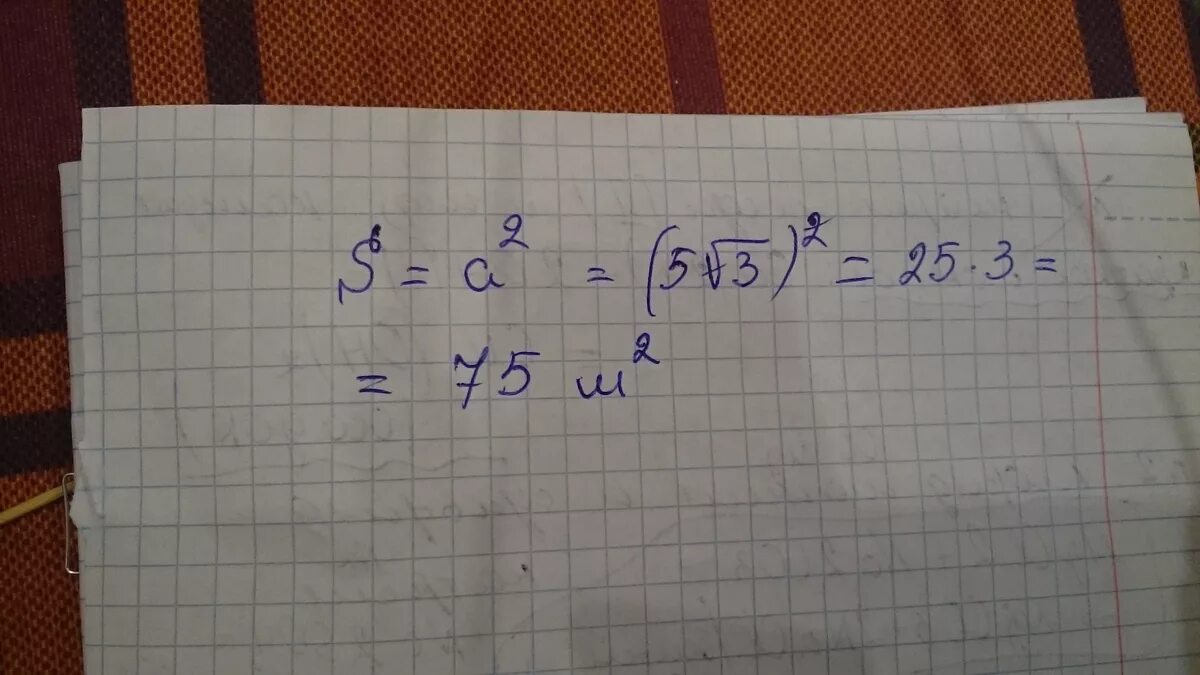 S = a² = (5√3)² = 25·3 =
= 75 м²